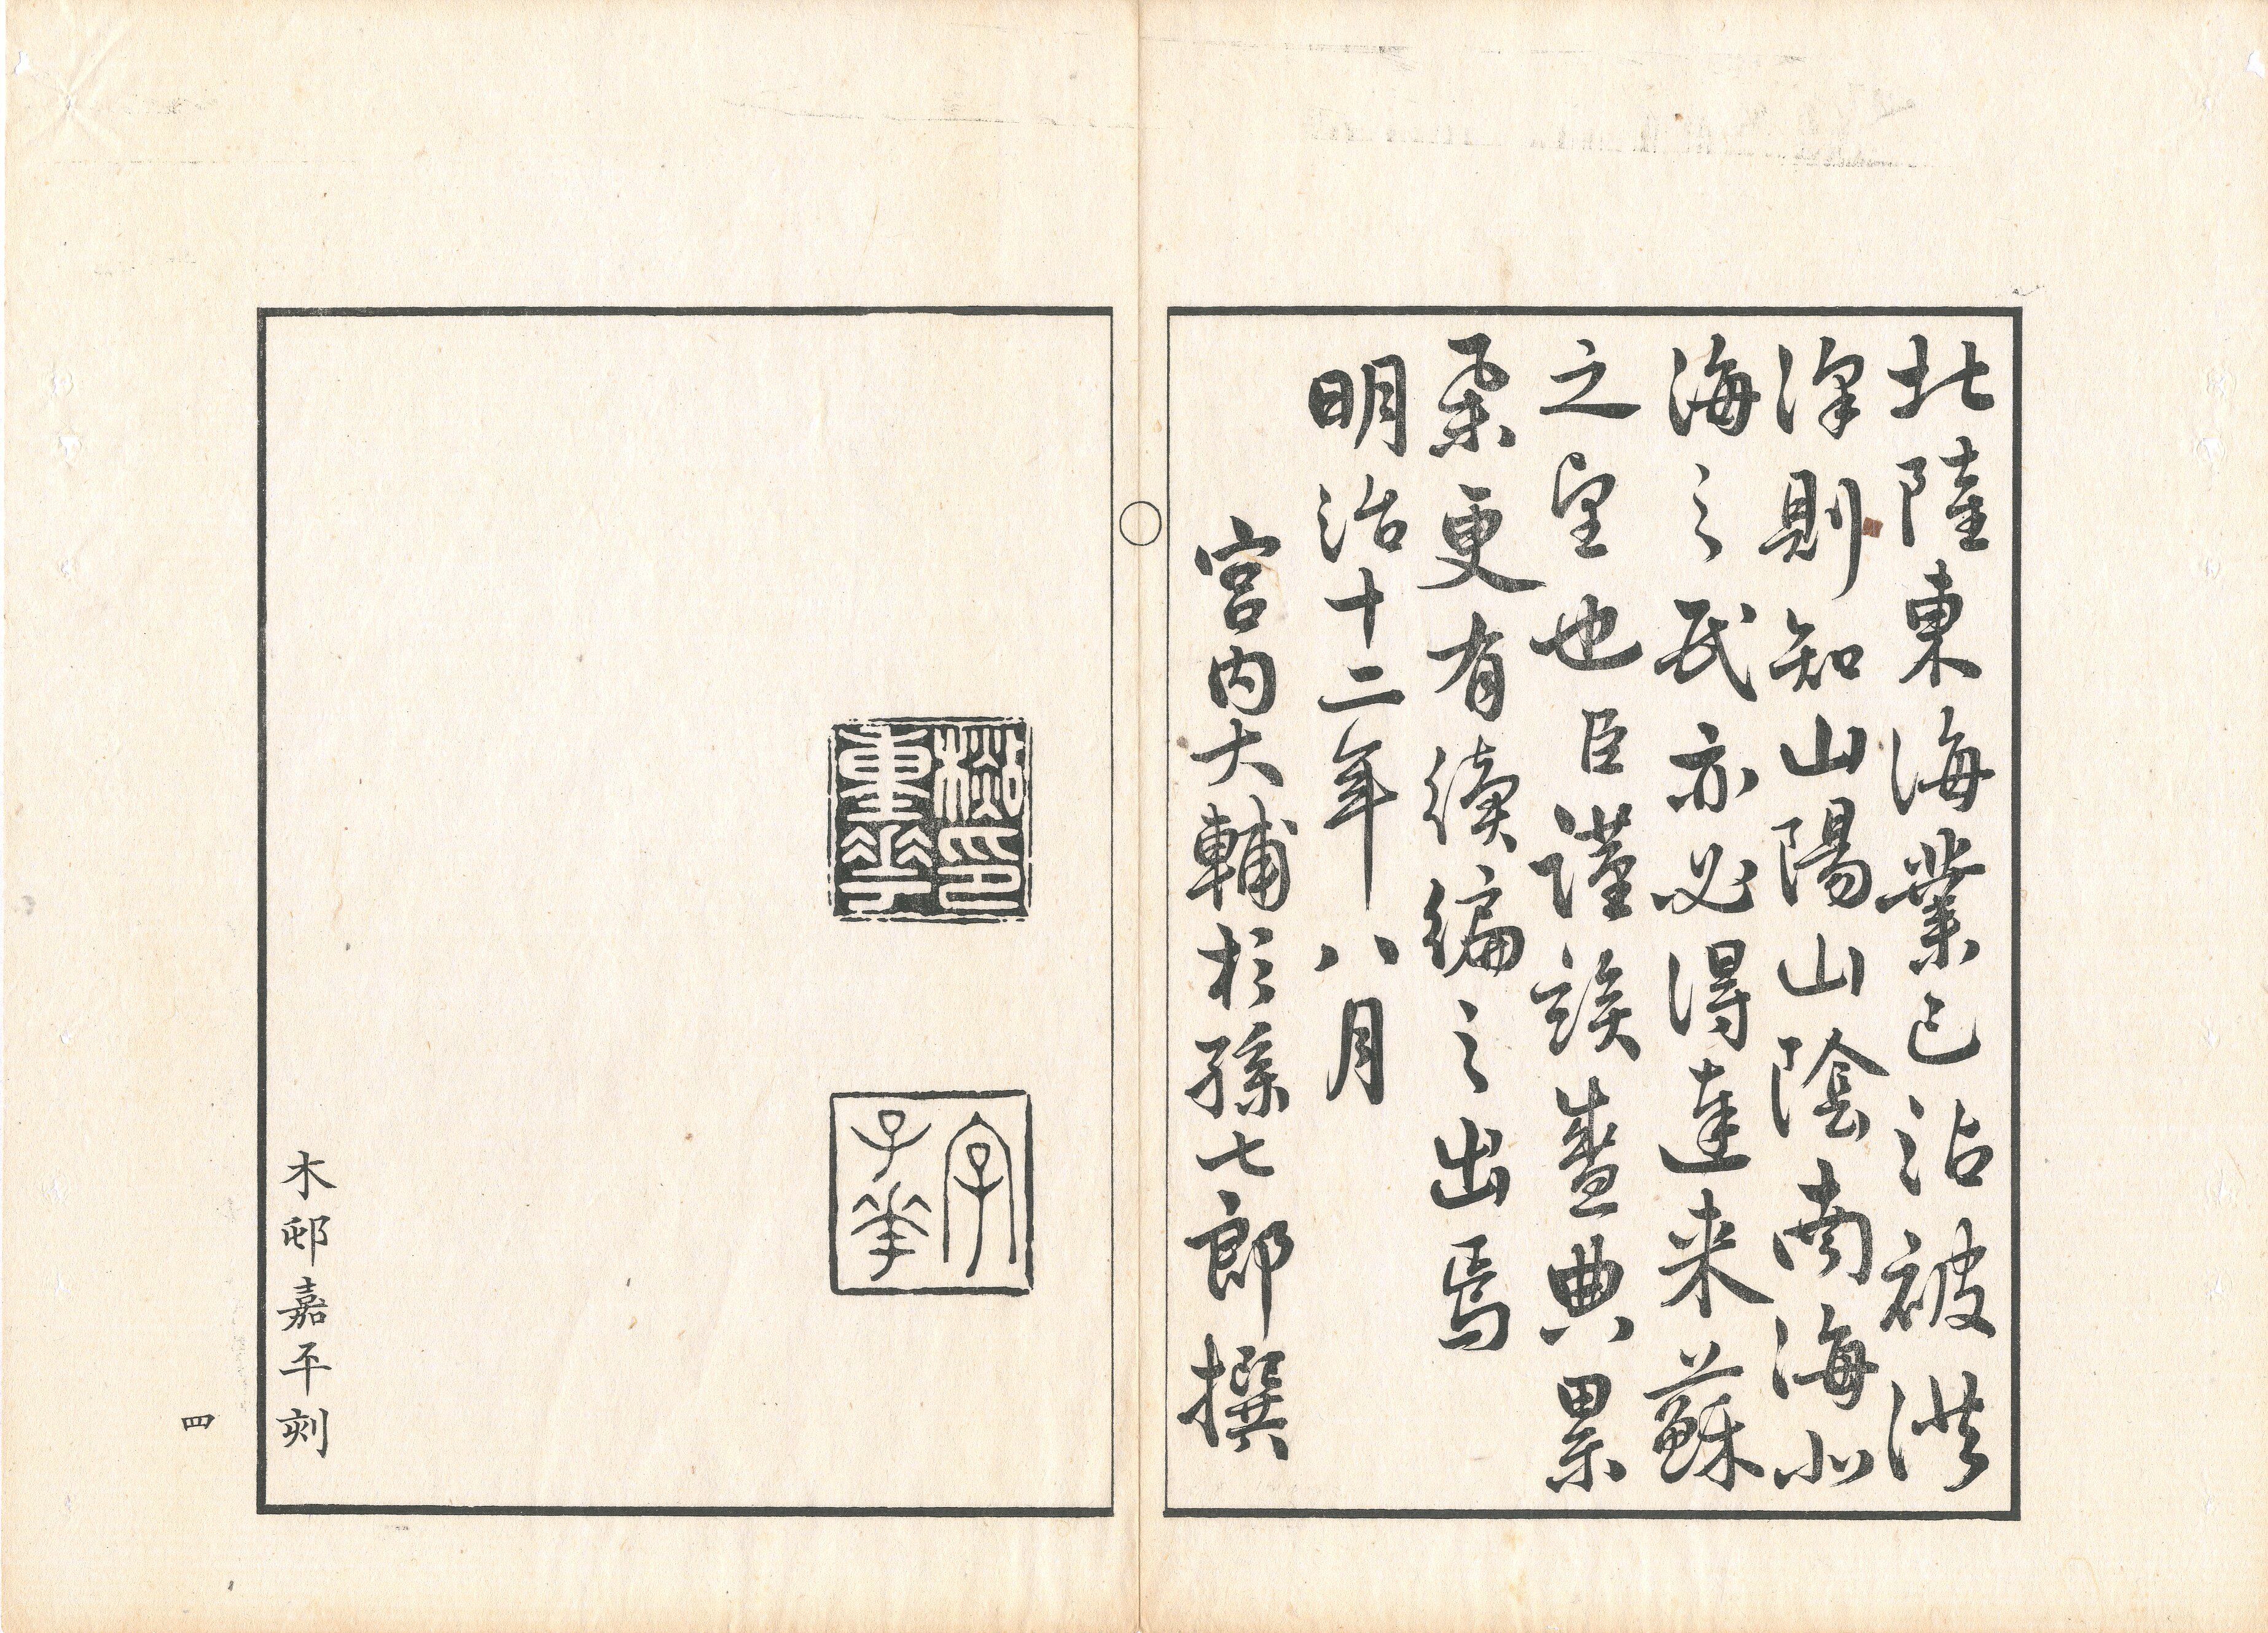 北陸東海業已沾被洪
澤則知山陽山陰南海北
海之民亦必得達来蘇
之望也臣謹竢盛典累
更有續編之出焉
明治十二年八月
宮内大輔杉孫七郎撰
檆印重華
字子華
木邨嘉平刻
四